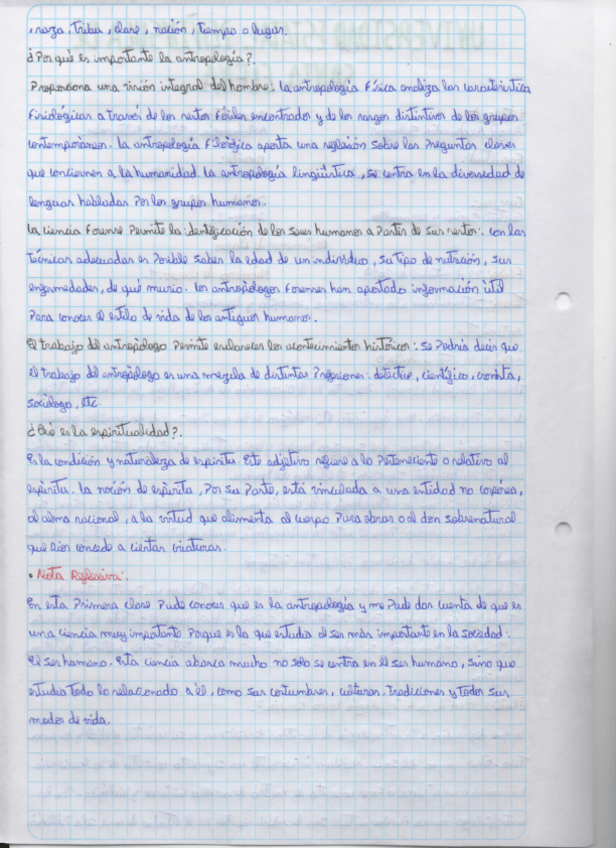 , raza, tribu, clase, nación, tiempo o lugar.
¿Por qué es importante la antropología?.
Proporciona una visión integral del hombre: la antropología física analiza las característica
fisiológicas a través de los restos fósiles encontrados y de los rasgos distintivos de los grupos
contemporáneos. la antropología filosófica aporta una reflexión sobre las Preguntas claves
que conciernen a la humanidad. la antropología lingüística, se centra en la diversidad de
lenguas habladas Por los grupos humanos.
la ciencia forense Permite la identificación de los seres humanos a Partir de sus restos: con las
técnicas adecuadas es Posible saber la edad de un individuo, su tipo de nutrición, sus
enfermedades, de qué murio. los antropólogos forenses han aportado información útil
Para conocer el estilo de vida de los antiguos humanos.
El trabajo del antropólogo Permite esclarecer los acontecimientos históricos: se Podría decir que
el trabajo del antropólogo es una mezcla de distintas Profesiones: detective, científico, cronista,
sociólogo, Etc.
¿Qué es la espiritualidad?.
Es la condición y naturaleza de espíritu. Este adjetivo refiere a lo Perteneciente o relativo al
espíritu. la noción de espíritu, Por su Parte, está vinculada a una entidad no corpórea,
al alma racional, a la virtud que alimenta al cuerpo Para obrar o al don sobrenatural
que Dios concede a ciertas criaturas.
• Nota Reflexiva:
En esta Primera clase Pude conocer que es la antropología y me Pude dar cuenta de que es
una ciencia muy importante Porque es la que estudia al ser más importante en la sociedad:
El ser humano. Esta ciencia abarca mucho no solo se centra en el ser humano, sino que
estudia todo lo relacionado a él, como sus costumbres, culturas, tradiciones y todos sus
modos de vida.